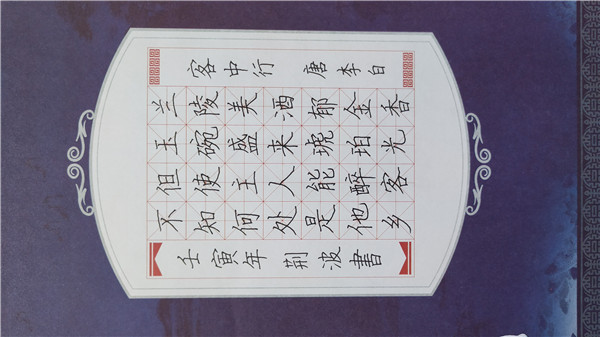 客中行 唐 李白
兰陵美酒郁金香
玉碗盛来琥珀光
但使主人能醉客
不知何处是他乡
壬寅年 荆波書